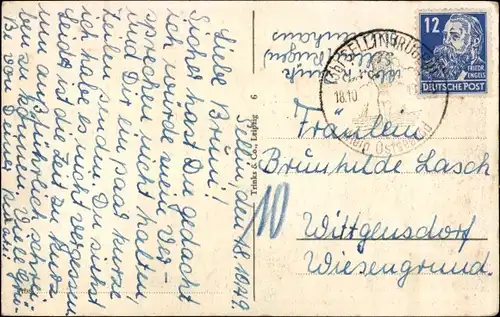 Sellin, den 18.10.49.
Liebe Bruni!
Sicher hast Du gedacht
ich würde mein Ver-
sprechen nicht halten,
und Dir ein paar kurze
Zeilen senden. Du siehst
ich habe es nicht vergessen.
Leider ist die Zeit zu kurz
um ausführlich schrei-
ben zu können. Viele Grü-
ße von Deiner
Trinks & Co., Leipzig 6
12
FRIEDR.
ENGELS
DEUTSCHE POST
SELLIN (RÜGEN)
18.10
Ostseebad
Fräulein
Brunhilde Lasch
10
Wittgensdorf
Wiesengrund.